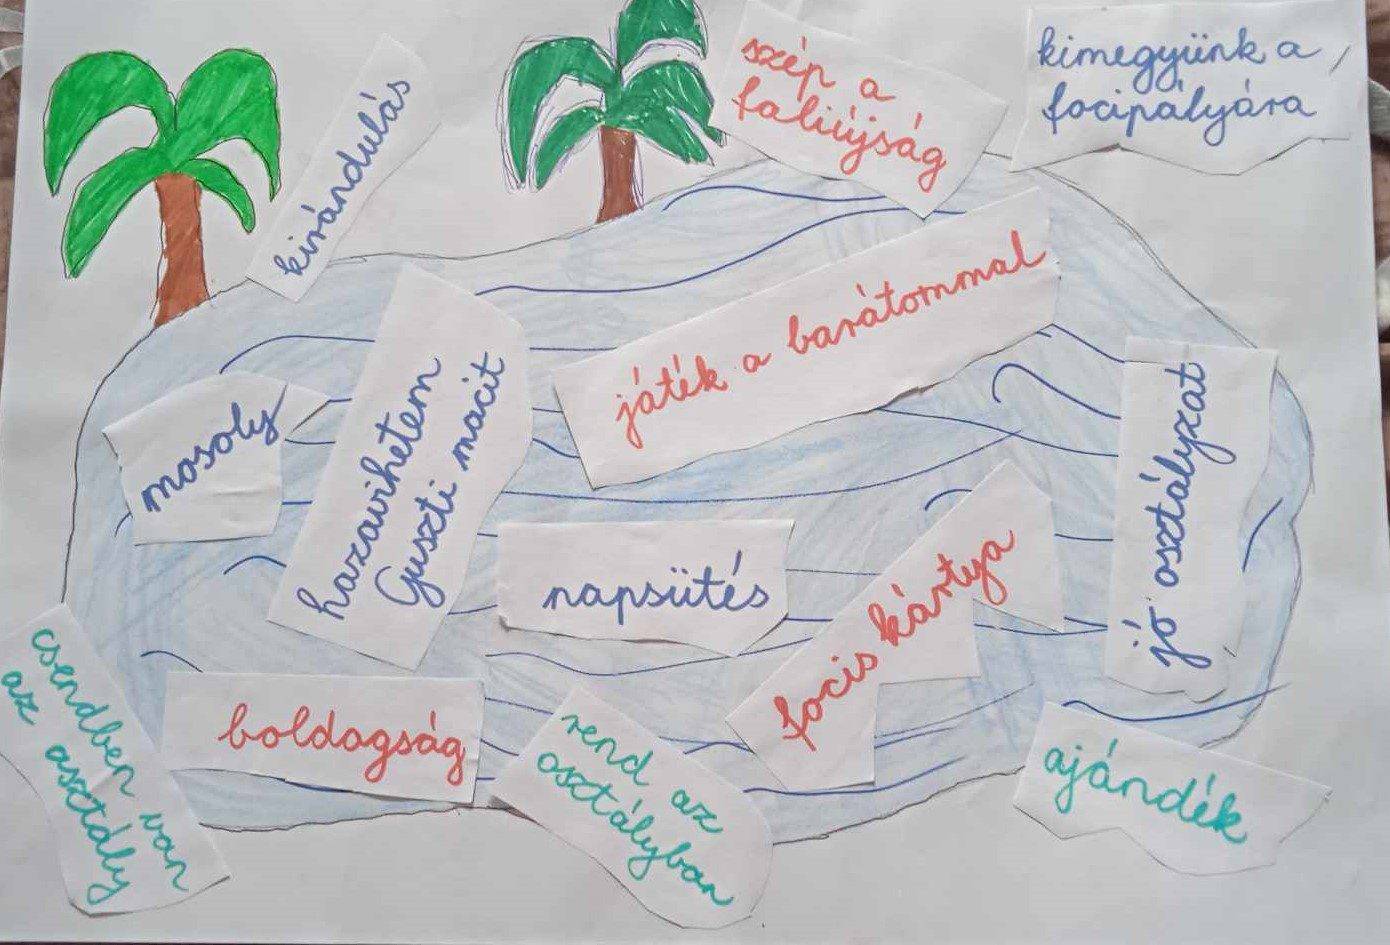 szép a
faliújság
kimegyünk a
focipályára
kirándulás
játék a barátommal
mosoly
hazavihetem
Guszti macit
jó osztályzat
napsütés
focis kártya
csendben van
az osztály
boldogság
rend az
osztályban
ajándék